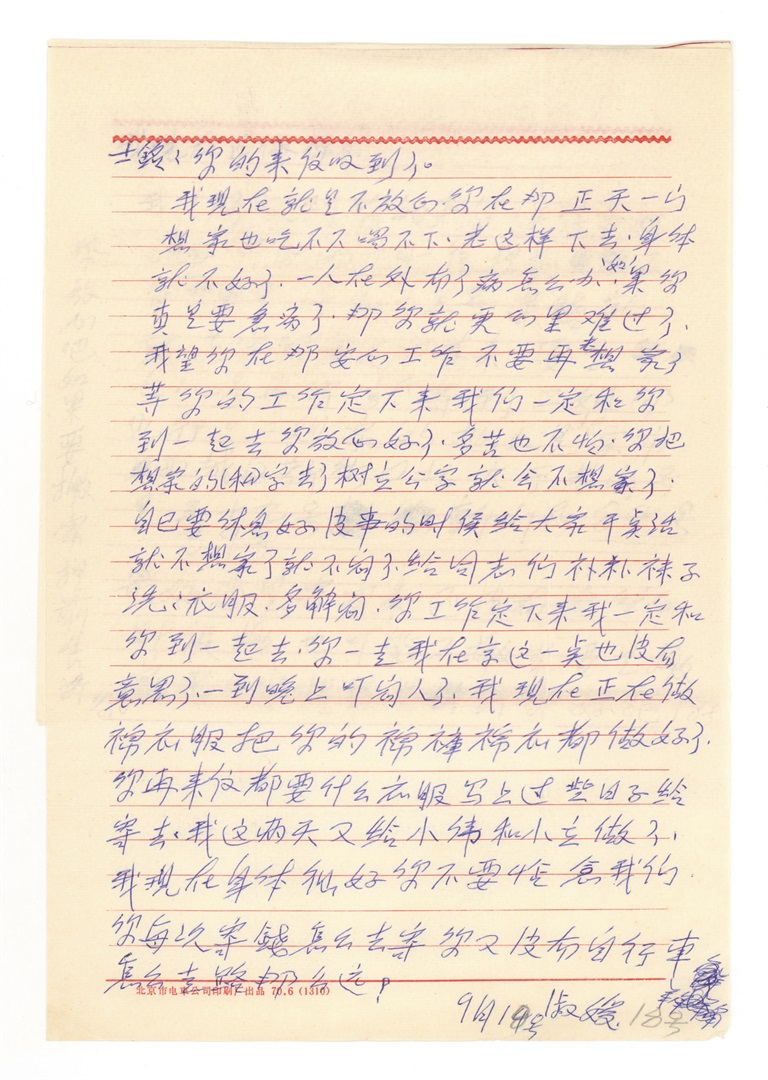 士铭: 你的来仪收到了。
我现在就是不放心.你在那正天一个
想家也吃不下喝不下.老这样下去.身体
就不好了.一人在外有了病怎么办.如果你
真是要急病了.那你就更心里难过了.
我望你在那安心工作不要再老想家了
等你的工作定下来我们一定和你
到一起去你放心好了.多苦也不怕.你把
想家的(私)字去了树立公字就会不想家了.
自己要休息好没事的时候给大家干点活
就不想家了就不闷了给同志们补补袜子
洗:衣服.多解闷.你工作定下来我一定和
你到一起去.你一走我在京这一点也没有
意思了.一到晚上吓闷人了.我现在正在做
棉衣服把你的棉裤棉衣都做好了.
你再来仪都要什么衣服写上过些日子给
寄去.我这两天又给小伟和小立做了.
我现在身体很好你不要惦念我们.
你每次寄钱怎么去寄你又没有自行車
怎么走路那么远?
北京市电車公司印刷厂出品 70.6 (1310)
9月19号 淑媛. 18号